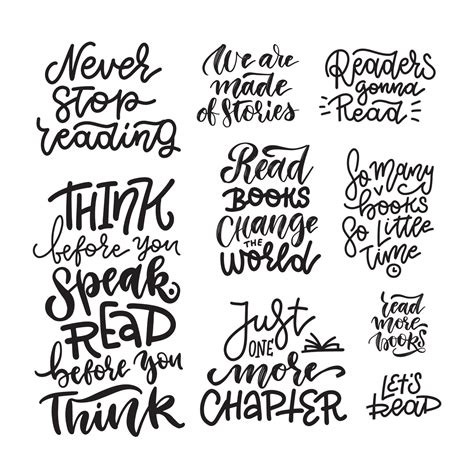 Never
Stop
reading
THINK
before you
SPeak.
READ
before you
Think
We are
made
of Stories
Read
BOOKS
Change
THE
World
Just
ONE
more
CHAPTER
Readers
gonna
Read
So Many
books
So Little
Time
read
more
books
Let's
Read